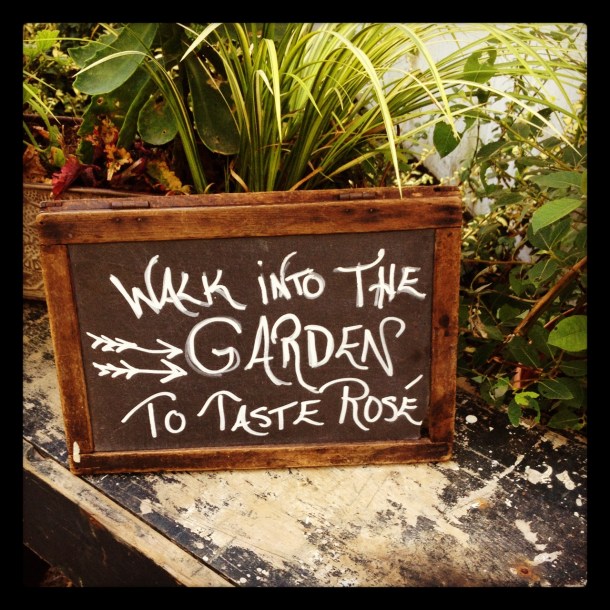 WALK iNTO THE
GARDEN
TO TASTE ROSÉ